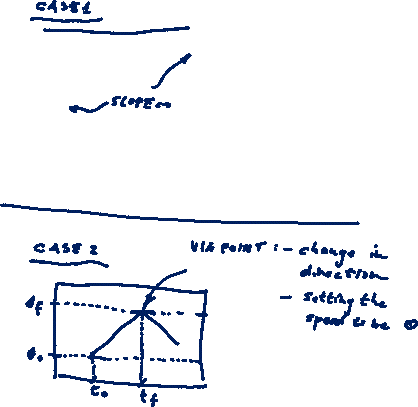 CASE 1
SLOPE
CASE 2
VIA POINT : - change in
direction
- setting the
speed to be 0
t₀
t_f